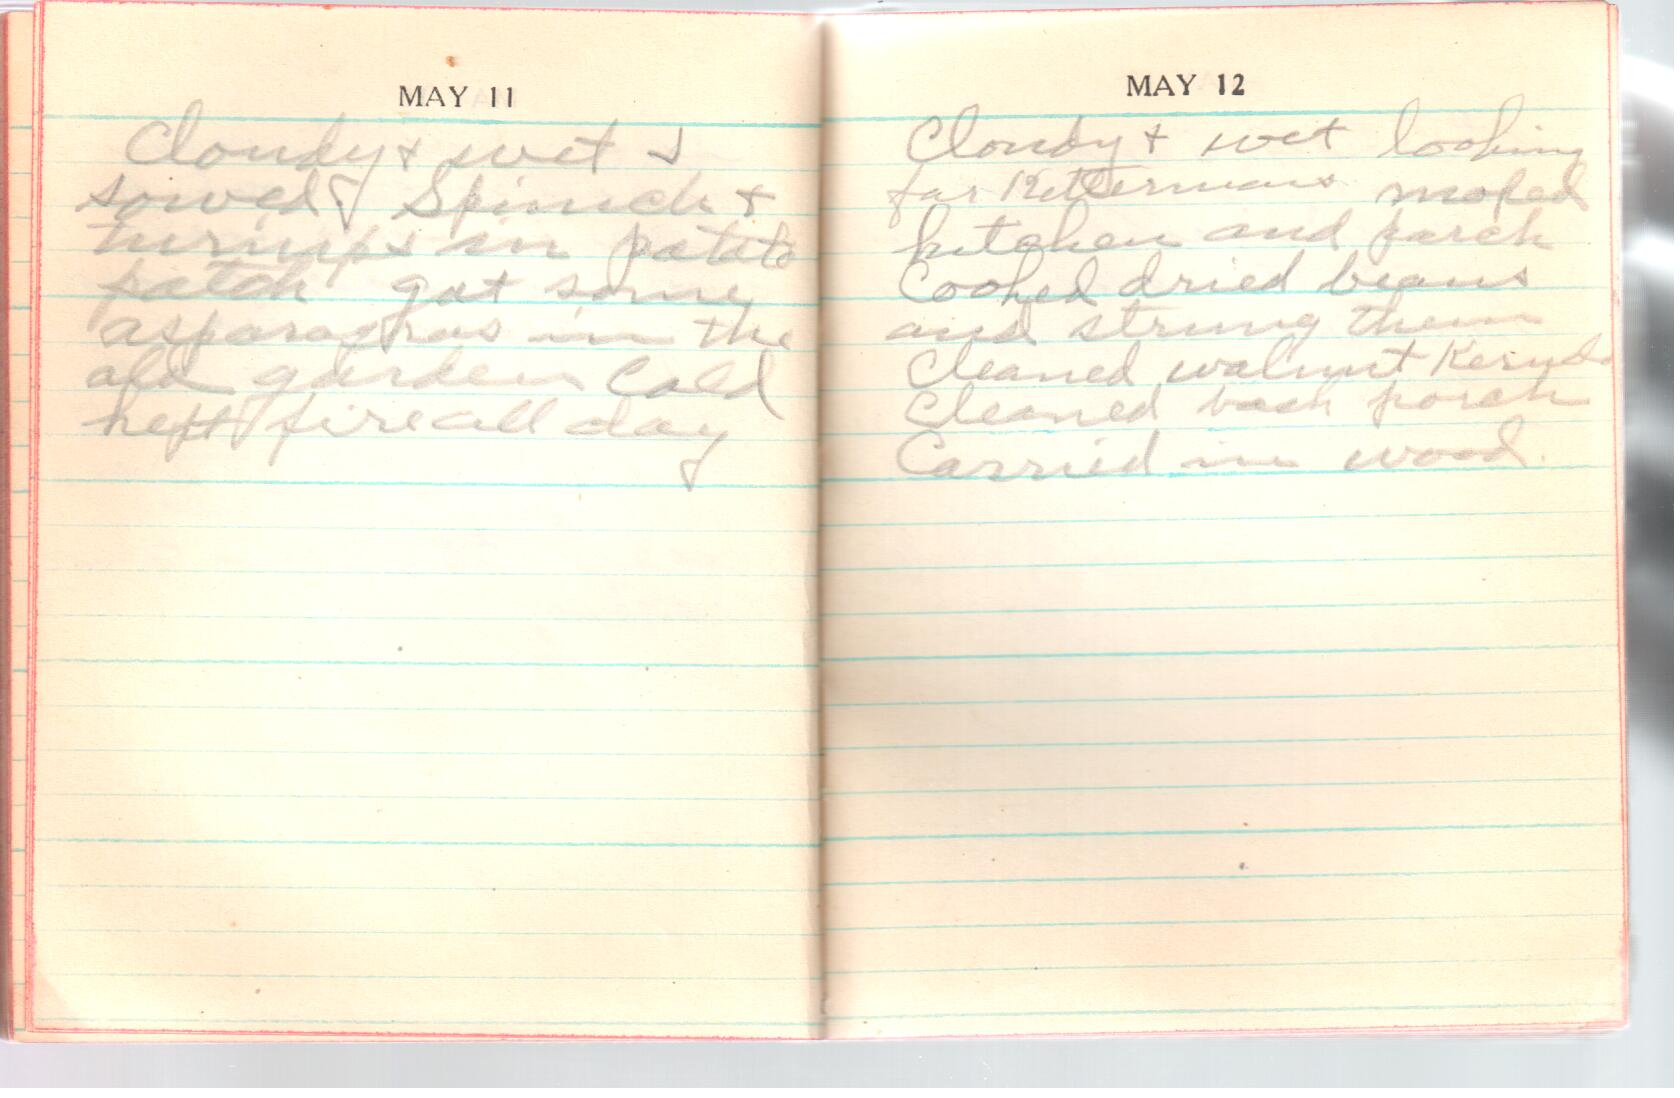 MAY 11
Cloudy & wet I
sowed Spinich &
turnips in patato
patch got some
asparagras in the
old garden Cold
kept fire all day
MAY 12
Cloudy & wet looking
for Kettermans moped
kitchen and porch
Cooked dried beans
and strung them
cleaned walnut Kernels
cleaned back porch
Carried in wood.